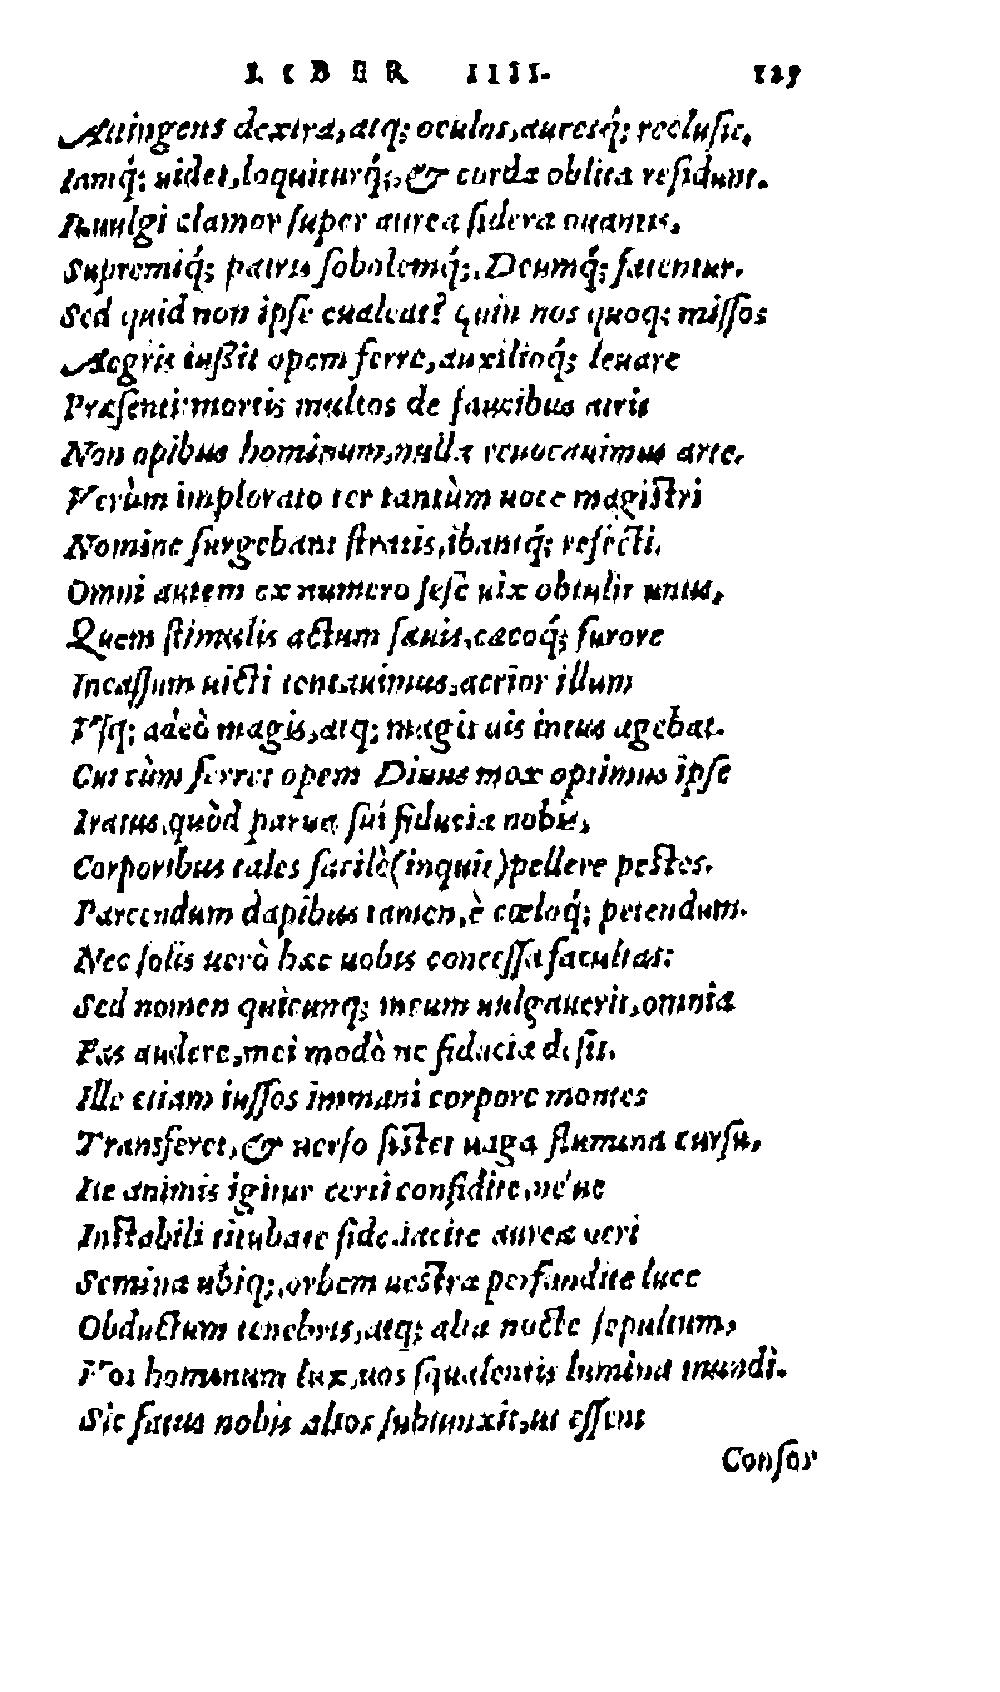 LIBER IIII. 125
Attingens dextra, atq; oculos, auresq́; reclusit.
Iamq́; uidet, loquiturq́;, & corda oblita residunt.
It uulgi clamor super aurea sidera ouantis,
Supremiq́; patris sobolemq́;, Deumq́; fatentur.
Sed quid non ipse eualeat? Quin nos quoq; missos
Aegris iußit opem ferre, auxilioq́; leuare
Præsenti: mortis multos de faucibus atris
Non opibus hominum, nulla reuocauimus arte,
Verùm implorato ter tantùm uoce magistri
Nomine surgebant stratis, ibantq́; refecti.
Omni autem ex numero sesē uix obtulit unus,
Quem stimulis actum sæuis, cæcoq́; furore
Incassum uicti tentauimus, acrior illum
Vsq; adeò magis, atq; magis uis intus agebat.
Cui tùm ferret opem Diuus mox optimus ipse
Iratus, quòd parua sui fiducia nobis,
Corporibus tales facilè (inquit) pellere pestes.
Parcendum dapibus tamen, è cœloq́; petendum.
Nec solis uerò hæc uobis concessa facultas:
Sed nomen quicunq; meum uulgauerit, omnia
Fas audere, mei modò ne fiducia desit.
Ille etiam iussos immani corpore montes
Transferet, & uerso sistet uaga flumina cursu,
Ite animis igitur certi confidite, né ue
Instabili titubate fide. iacite aurea ueri
Semina ubiq;, orbem uestra perfundite luce
Obductum tenebris, atq; alta nocte sepultum,
Vos hominum lux, uos squalentis lumina mundi.
Sic fatus nobis alios subiunxit, ut essent
Consor